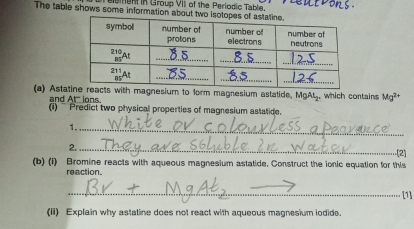 element in Group VII of the Periodic Table.
neutrons.
The table shows some information about two isotopes of astatine.
symbol number of protons number of electrons number of neutrons
²¹⁰₈₅At 85 85 125
²¹¹₈₅At 85 85 126
(a) Astatine reacts with magnesium to form magnesium astatide, MgAt₂, which contains Mg²⁺
and At⁻ ions.
(i) Predict two physical properties of magnesium astatide.
1. White or colourless apearance
2. They are soluble in water [2]
(b) (i) Bromine reacts with aqueous magnesium astatide. Construct the ionic equation for this
reaction.
Br + MgAt₂ → [1]
(ii) Explain why astatine does not react with aqueous magnesium iodide.